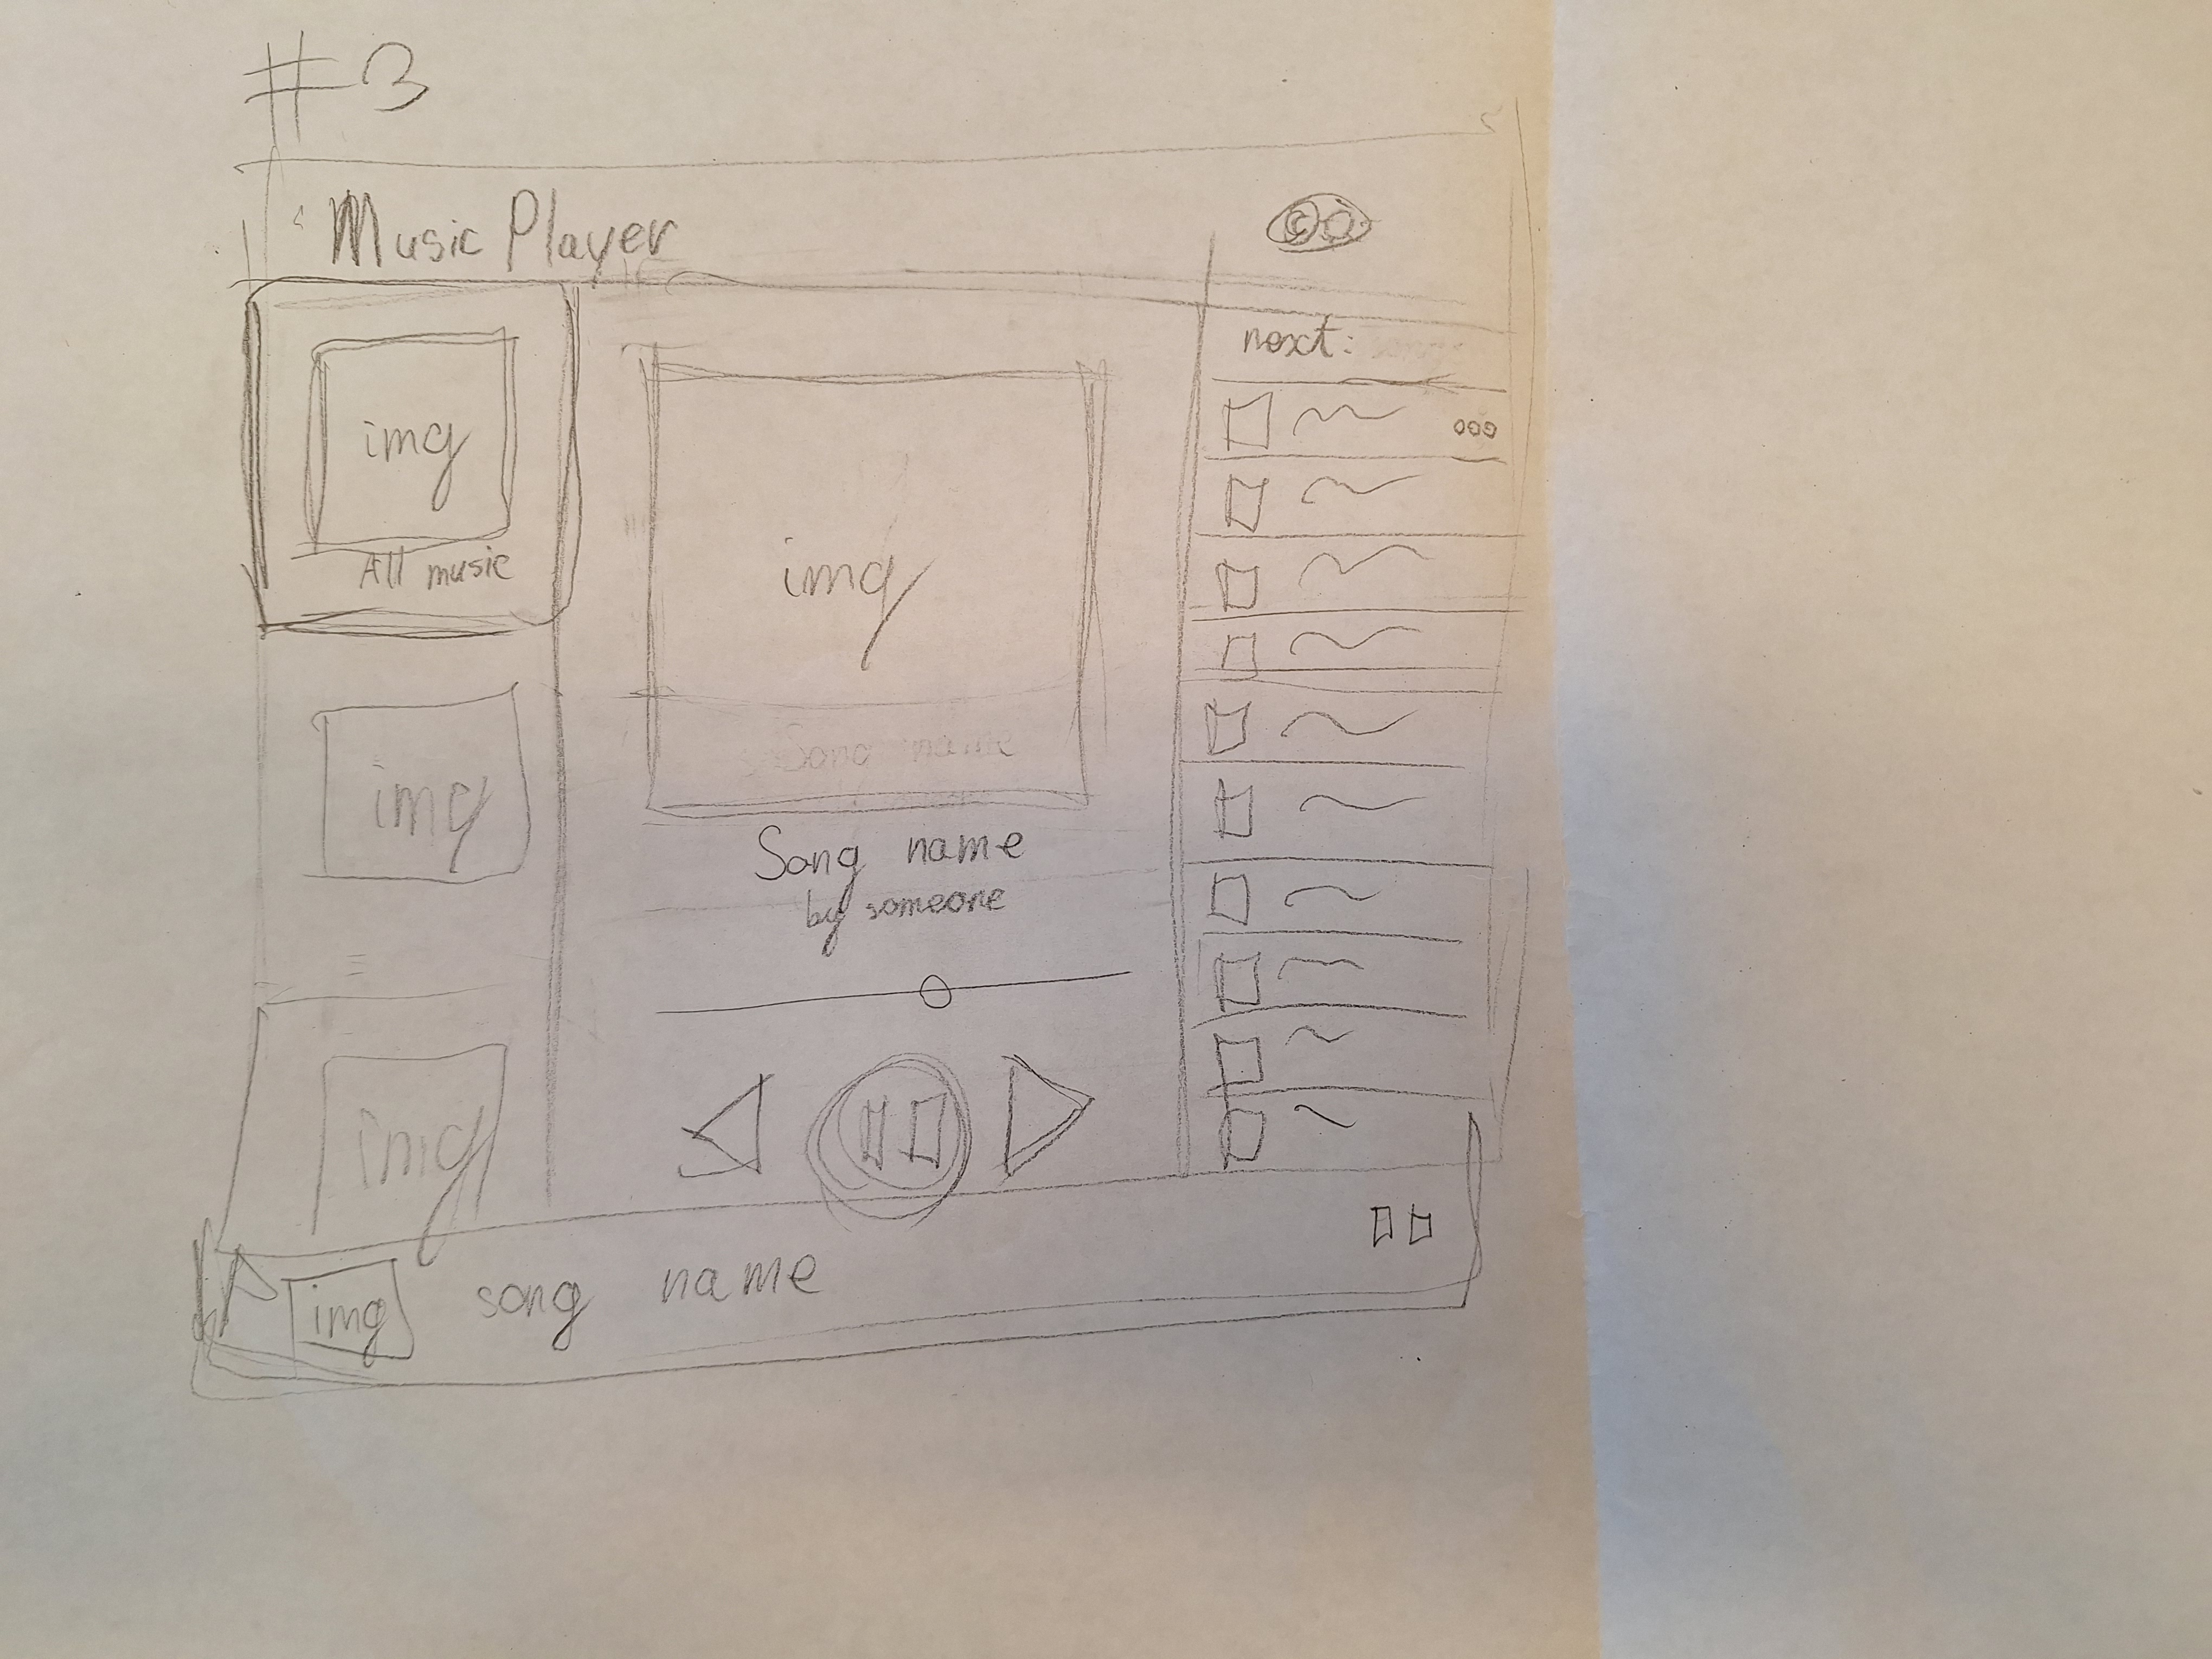 #3
Music Player
img
All music
img
img
img
Song name
by someone
next:
img
song name